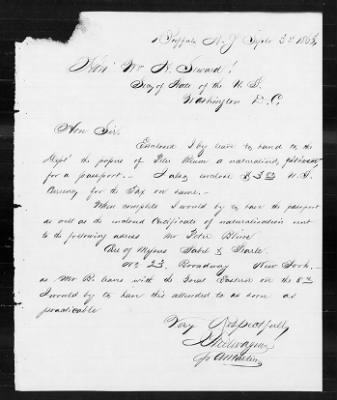 Buffalo N. Y. Sept 3d 1863
Hon Wm H. Seward!
Secy of State of the U. S.
Washington D. C.
Hon Sir.
Enclosed I beg leave to hand to the
Dept the papers of Peter Blum a naturalized,
for a passport. — I also enclose $3 U. S.
Currency for the Tax on same. —
When complete I would beg to have the passport
as well as the enclosed Certificate of naturalization sent
to the following adress Mr Peter Blum
Care of Messrs Sabel & Searle
No 23. Broadway New York.
as Mr B. leaves with the Great Eastern on the 8th
I would beg to have this attended to as soon as
practicable
Very Respectfully